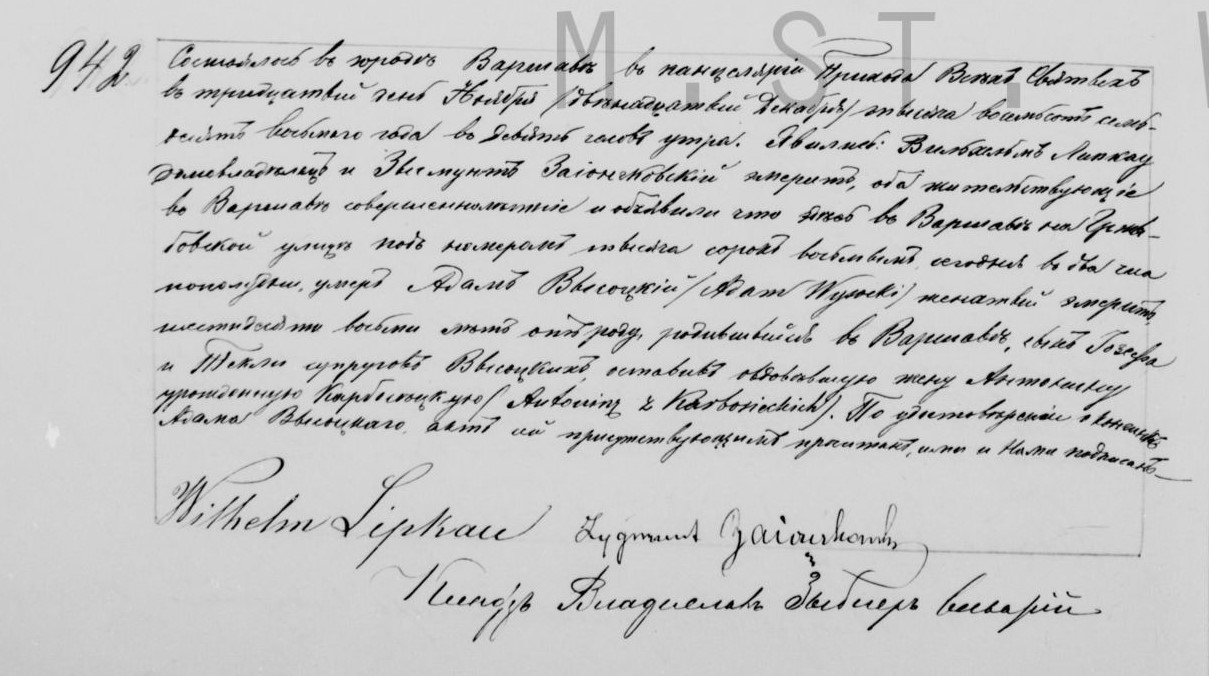 M . S T . W
942
Состоялось въ городѣ Варшавѣ въ канцеляріи Прихода Всѣхъ Святыхъ
въ тридцатый день Ноября /двѣнадцатый Декабря/ тысяча восемьсотъ семь-
десятъ восьмого года въ девять часовъ утра. Явились: Вильхельмъ Липкау
домовладѣлецъ и Зыгмунтъ Заіончковскій эмеритъ, оба жительствующіе
въ Варшавѣ совершеннолѣтніе и объявили что въ Варшавѣ на Гржи-
бовской улицѣ подъ номеромъ тысяча сорокъ восьмымъ, сегодня въ два часа
пополудни, умеръ Адамъ Высоцкій /Adam Wysocki/ женатый эмеритъ,
шестидесяти восьми лѣтъ отъ роду, родившійся въ Варшавѣ, сынъ Іозефа
и Текли супруговъ Высоцкихъ, оставивъ овдовѣвшую жену Антонину
урожденную Карбосѣцкую /Antoninę z Karbosieckich/. По удостовѣреніи о кончинѣ
Адама Высоцкаго, актъ сей присутствующимъ прочитанъ, ими и Нами подписанъ
Wilhelm Lipkau Zygmunt Zaiączkowski
Ксендзъ Владиславъ Зыбертъ викарій